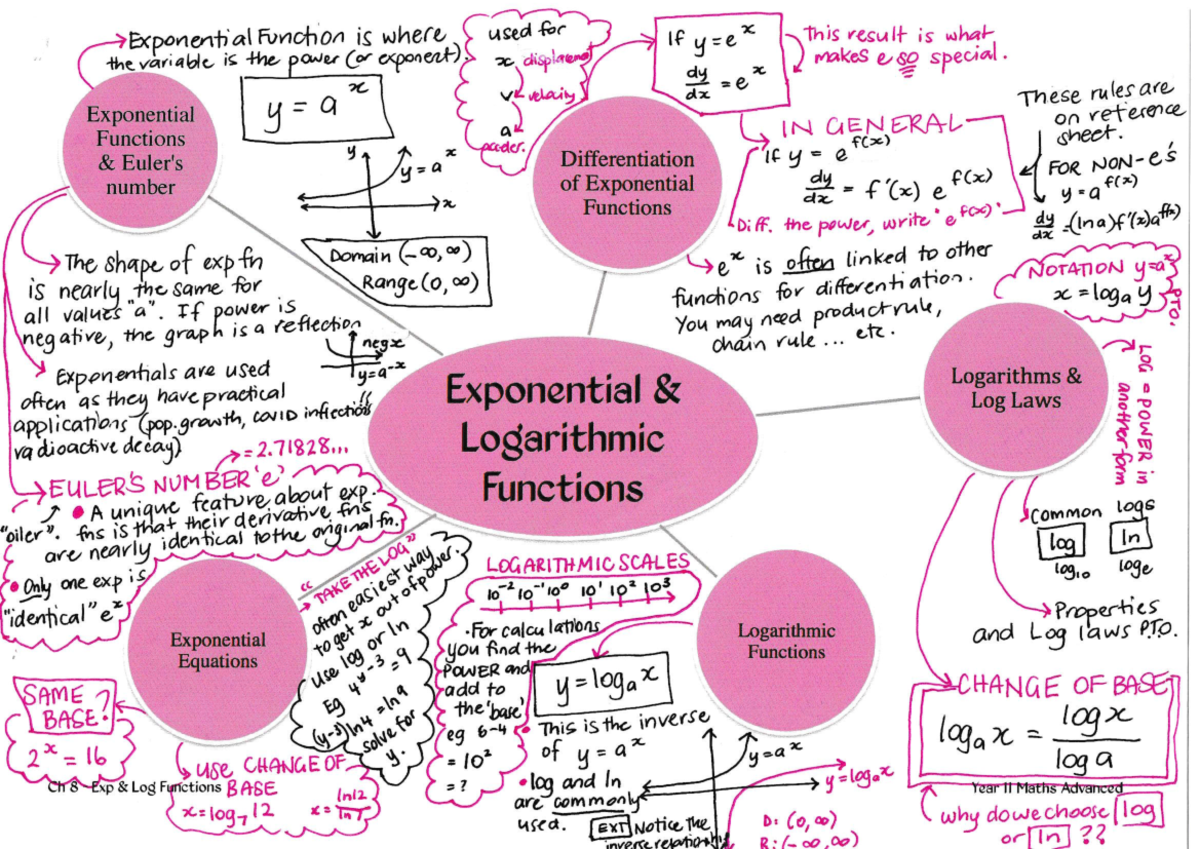 Exponential Function is where
the variable is the power (or exponent).
Exponential
Functions
& Euler's
number
y = a^x
y
y = a^x
x
Domain (-∞, ∞)
Range (0, ∞)
The shape of exp fn
is nearly the same for
all values "a". If power is
negative, the graph is a reflection
neg x
y = a^-x
Exponentials are used
often as they have practical
applications (pop. growth, covid infections
radioactive decay)
= 2.71828...
EULER'S NUMBER 'e'
"oiler".
• A unique feature about exp.
fns is that their derivative fns
are nearly identical to the original fn.
• Only one exp is
"identical" e^x
used for
x displacement
v velocity
a
acceler.
Differentiation
of Exponential
Functions
If y = e^x
dy/dx = e^x
This result is what
makes e so special.
IN GENERAL
If y = e^f(x)
dy/dx = f'(x) e^f(x)
Diff. the power, write "e^f(x)"
These rules are
on reference
sheet.
FOR NON-e's
y = a^f(x)
dy/dx = (ln a) f'(x) a^f(x)
e^x is often linked to other
functions for differentiation.
You may need product rule,
chain rule ... etc.
NOTATION y = a^x
x = log_a y
PTO.
Exponential &
Logarithmic
Functions
Logarithms &
Log Laws
LOG = POWER in
another form
Common logs
log
ln
log_10
log_e
Properties
and Log laws P.T.O.
CHANGE OF BASE
log_a x = log x / log a
why do we choose log
or ln ??
Exponential
Equations
"TAKE THE LOG"
often easiest way
to get x out of power.
Use log or ln
Eg 4^y-3 = 9
(y-3) ln 4 = ln 9
solve for
y.
SAME
BASE?
2^x = 16
use CHANGE OF
BASE
x = log_7 12
x = ln12/ln7
LOGARITHMIC SCALES
10^-2 10^-1 10^0 10^1 10^2 10^3
• For calculations
you find the
POWER and
add to
the 'base'
eg 6-4
= 10^2
= ?
Logarithmic
Functions
y = log_a x
• This is the inverse
of y = a^x
• log and ln
are commonly
used.
EXT Notice the
inverse relationship
y = a^x
y = log_a x
D: (0, ∞)
R: (-∞, ∞)
Ch 8 Exp & Log Functions
Year 11 Maths Advanced